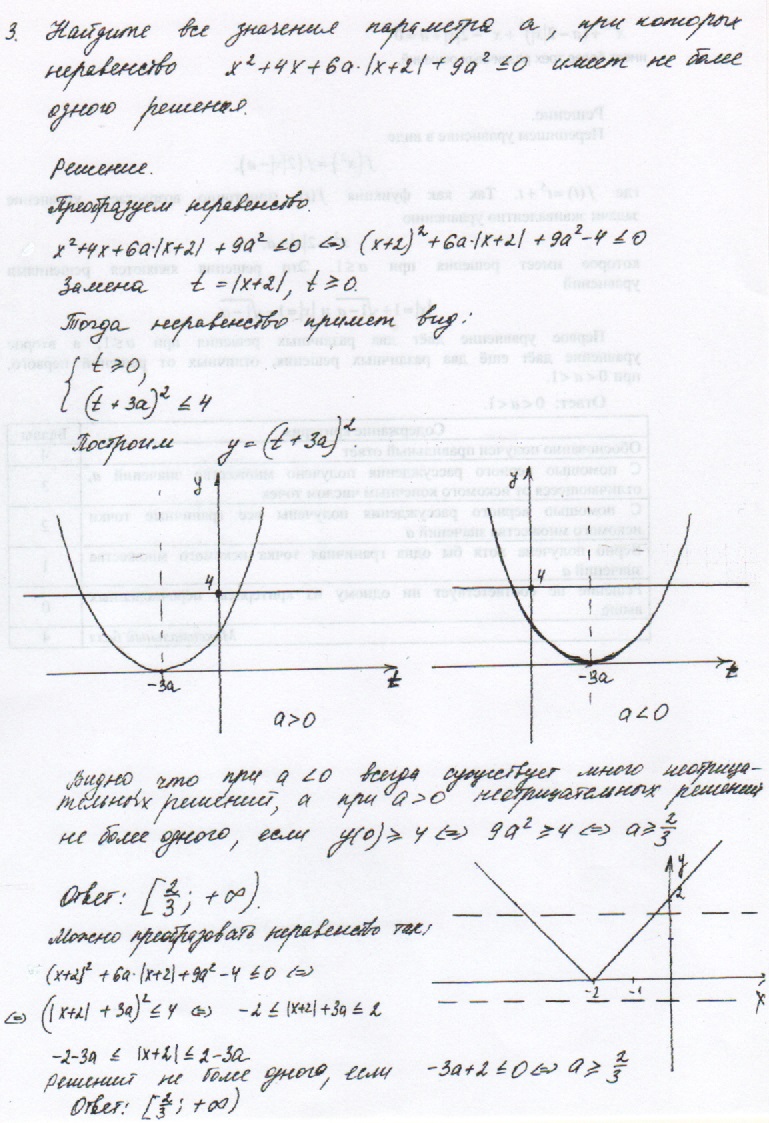 3. Найдите все значения параметра a, при которых
неравенство x²+4x+6a·|x+2|+9a²≤0 имеет не более
одного решения.
Решение.
Преобразуем неравенство.
x²+4x+6a·|x+2|+9a²≤0 ⇔ (x+2)²+6a·|x+2|+9a²-4≤0
Замена t=|x+2|, t≥0.
Тогда неравенство примет вид:
{ t≥0,
(t+3a)²≤4
Построим y=(t+3a)²
y
4
-3a
t
a>0
y
4
-3a
t
a<0
Видно что при a<0 всегда существует много неотрица-
тельных решений, а при a>0 неотрицательных решений
не более одного, если y(0)≥4 ⇔ 9a²≥4 ⇔ a≥2/3
Ответ: [2/3; +∞).
Можно преобразовать неравенство так:
(x+2)²+6a·|x+2|+9a²-4≤0 ⇔
⇔ (|x+2|+3a)²≤4 ⇔ -2≤|x+2|+3a≤2
-2-3a≤|x+2|≤2-3a
Решений не более одного, если -3a+2≤0 ⇔ a≥2/3
Ответ: [2/3; +∞)
y
2
-2
-1
x